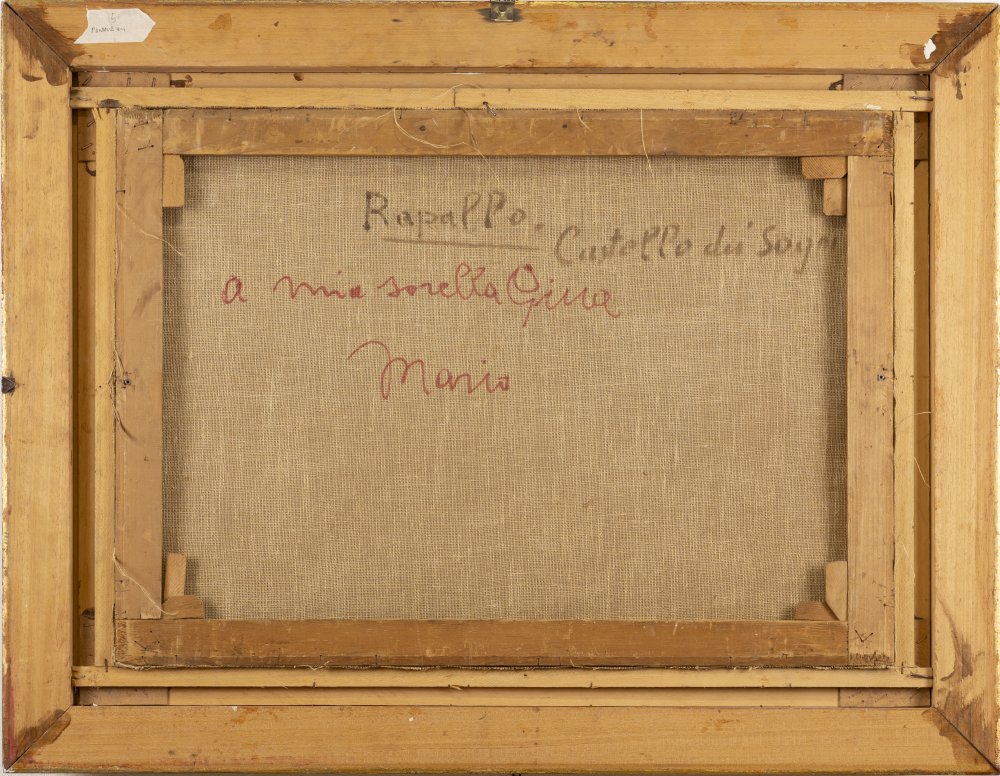 Rapallo.
Castello dei Sogni
a mia sorella Gina
Mario